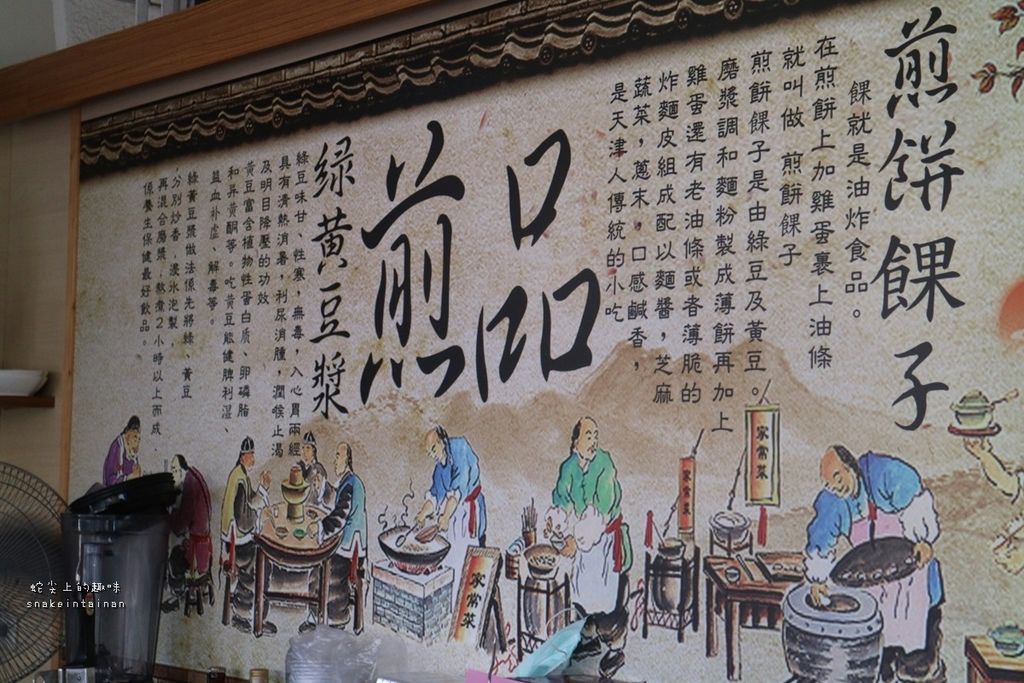 煎餅餜子
餜就是油炸食品。
在煎餅上加雞蛋裹上油條
就叫做 煎餅餜子
煎餅餜子是由綠豆及黃豆。
磨漿調和麵粉製成薄餅再加上
雞蛋還有老油條或者薄脆的
炸麵皮組成配以麵醬，芝麻
蔬菜，蔥末，口感鹹香，
是天津人傳統的小吃
煎品
绿黃豆漿
綠豆味甘、性寒，無毒，入心胃兩經
具有清熱消暑，利尿消腫，潤喉止渴
及明目降壓的功效
黃豆富含植物性蛋白质、卵磷脂
和异黃酮等。吃黃豆能健脾利湿、
益血补虚、解毒等。
綠黃豆漿做法係先將綠、黃豆
分別炒香，浸水泡製，
再混合磨漿，熬煮2小時以上而成、
係養生保健最好飲品。
家常菜
家常菜
家常菜
蛇尖上的趣味
snakeintainan